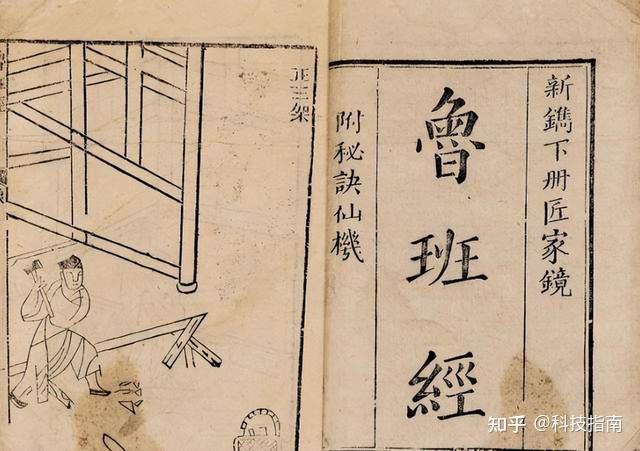 新鐫下冊匠家鏡
魯班經
附秘訣仙機
正三架
知乎 @科技指南